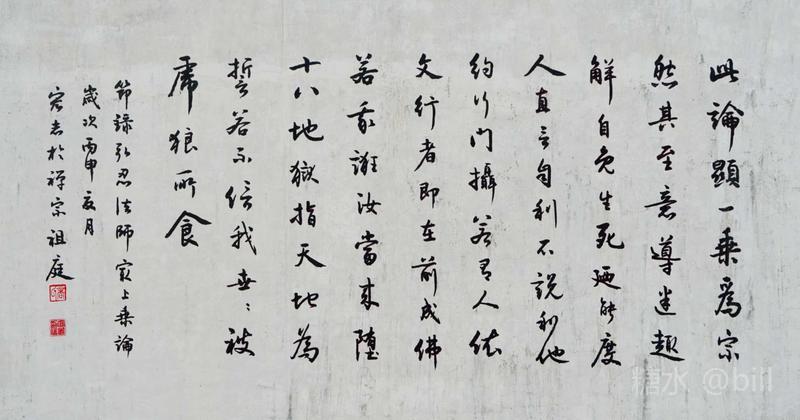 此論顯一乗為宗
然其至意導迷趣
解自免生死廼能度
人直言自利不說利他
約行門攝若有人依
文行者即在前成佛
若我誑汝當來墮
十八地獄指天地為
誓若不信我世〻被
虎狼所食
節錄弘忍法師最上乗論
歲次丙申夏月
宏志於禪宗祖庭
糖水 @bill